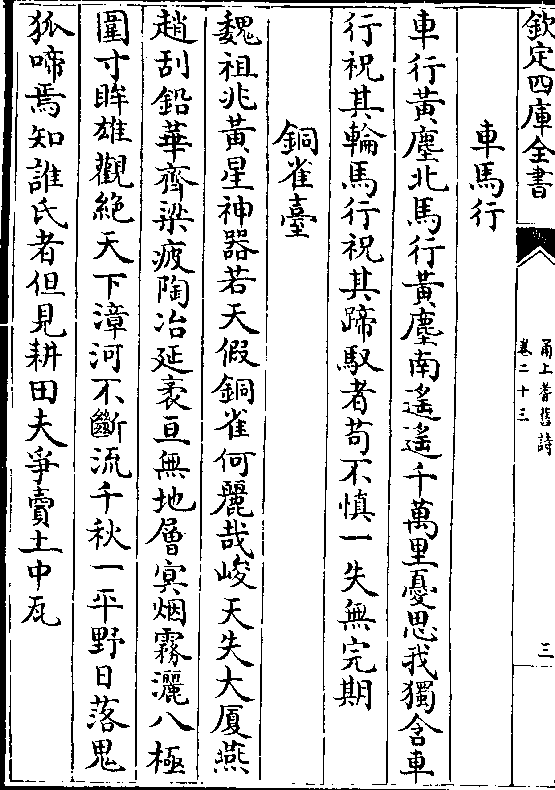 欽定四庫全書
甬上耆舊詩
卷二十三
三
車馬行
車行黃塵北馬行黃塵南遙遙千萬里憂思我獨含車
行祝其輪馬行祝其蹄馭者苟不慎一失無完期
銅雀臺
魏祖兆黃星神器若天假銅雀何麗哉峻天失大厦燕
趙刮鉛華齊梁疲陶冶延袤亘無地層㝠烟霧灑八極
圍寸眸雄觀絶天下漳河不斷流千秋一平野日落鬼
狐啼焉知誰氏者但見耕田夫爭賣土中瓦